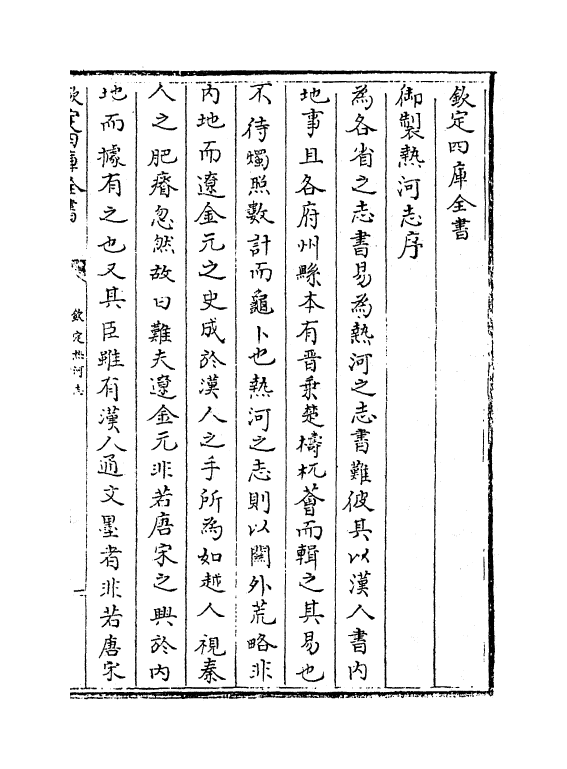 欽定四庫全書
御製熱河志序
為各省之志書易為熱河之志書難彼其以漢人書内
地事且各府州縣本有晉乗楚檮杌薈而輯之其易也
不待燭照數計而龜卜也熱河之志則以關外荒略非
内地而遼金元之史成於漢人之手所為如越人視秦
人之肥瘠忽然故曰難夫遼金元非若唐宋之興於内
地而據有之也又其臣雖有漢人通文墨者非若唐宋
欽定四庫全書
欽定熱河志
一